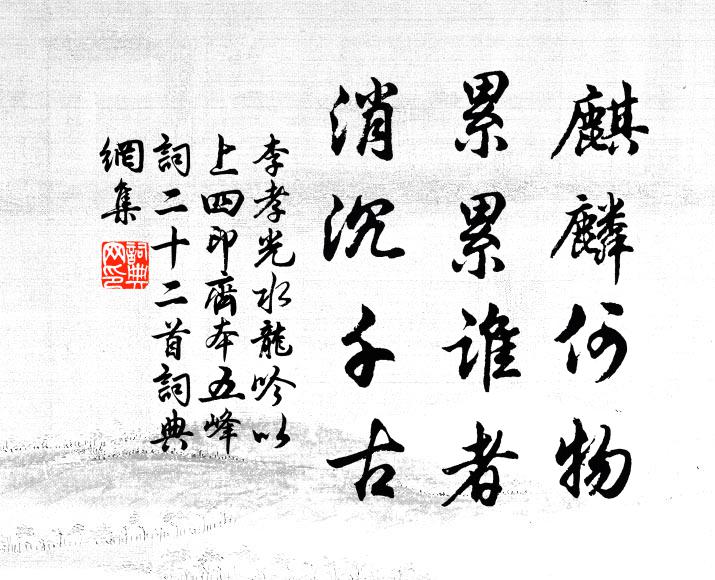 麒麟何物
累累誰者
消沉千古
李孝光水龍吟以
上四印齋本五峰
詞二十二首詞典
網集
詞典
网印